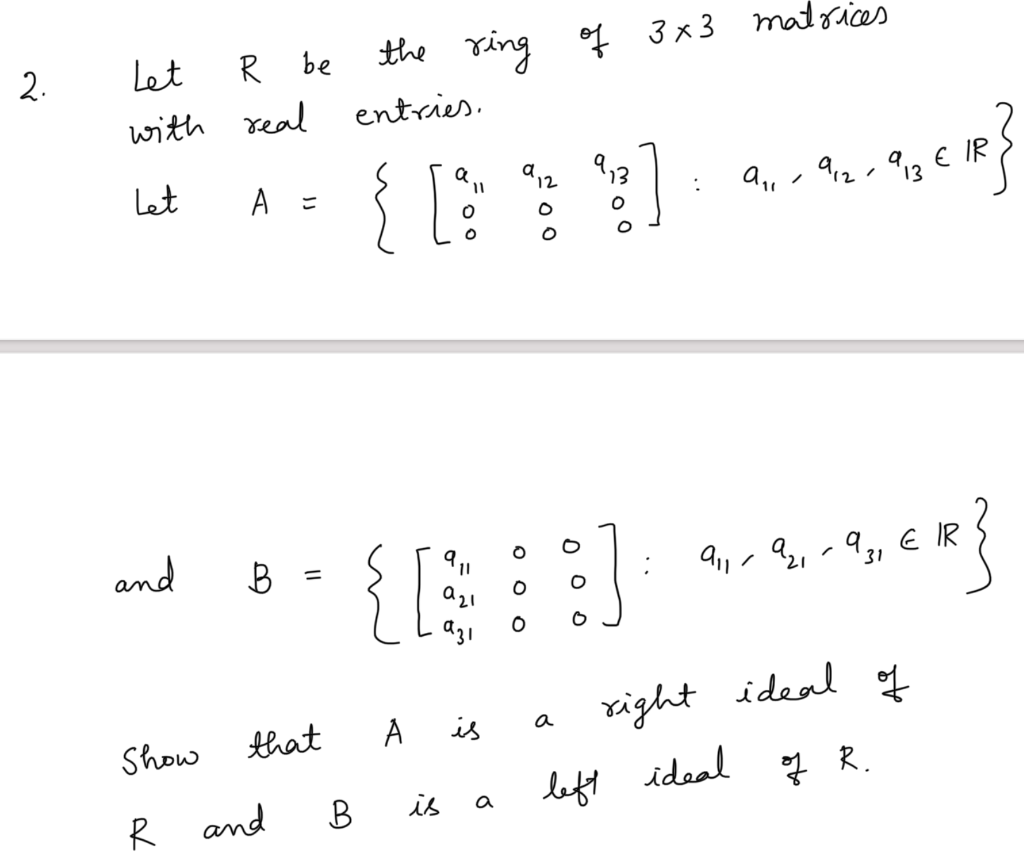 2. Let R be the ring of 3 x 3 matrices
with real entries.
Let A = { [ a₁₁ a₁₂ a₁₃
0 0 0
0 0 0 ] : a₁₁, a₁₂, a₁₃ ∈ ℝ }
and B = { [ a₁₁ 0 0
a₂₁ 0 0
a₃₁ 0 0 ] : a₁₁, a₂₁, a₃₁ ∈ ℝ }
Show that A is a right ideal of
R and B is a left ideal of R.